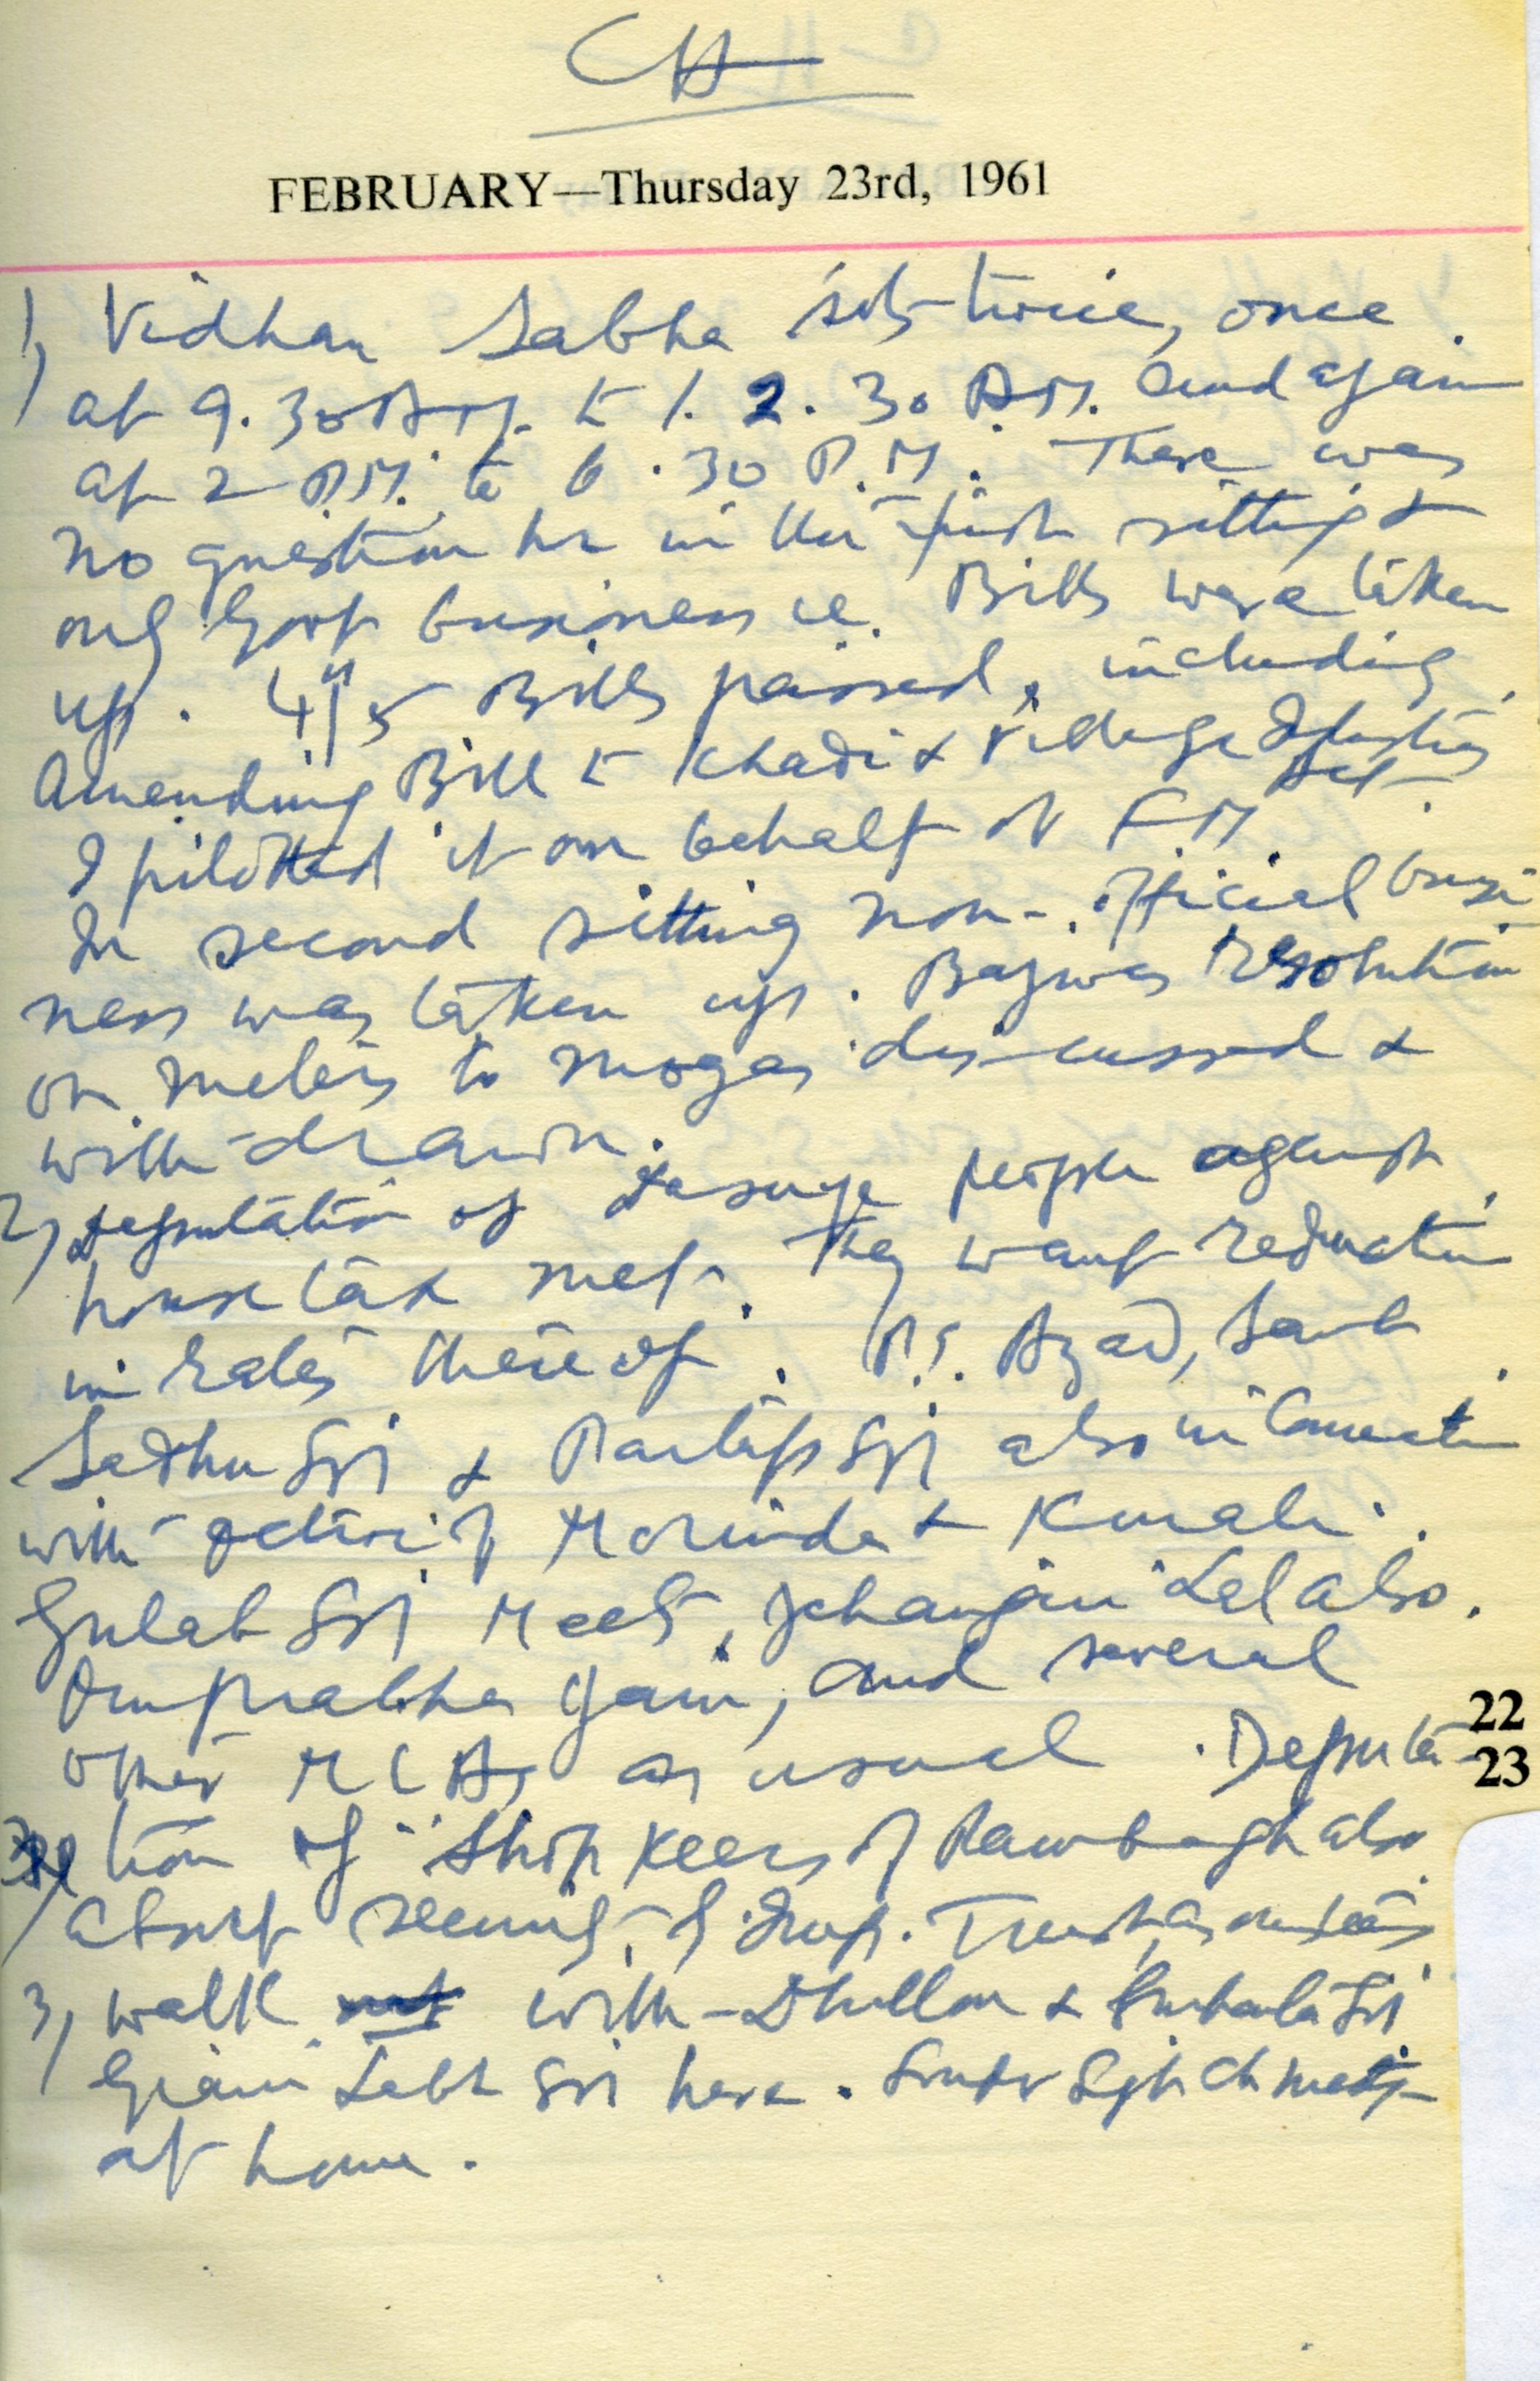 CH
FEBRUARY—Thursday 23rd, 1961
1) Vidhan Sabha sits twice, once
at 9.30 A.M. to 1. 2.30 P.M. and again
at 2 P.M. to 6.30 P.M. There was
no question hr in the first sitting &
only Govt business ie. Bills were taken
up. 4/5 Bills passed, including
Amending Bill to Khadi & Village Industries
Act.
I pilotted it on behalf of FM
In second sitting non-official busi-
ness was taken up. Bajwas resolution
on meters to mogas discussed &
with-drawn.
2) Deputation of Dasuya people against
house tax met. They want reduction
in rates thereof. P.S. Azad, Sant
Sadhu Sgh & Partap Sgh also in Connection
with of Morinda & Kurali.
Gulab Sgh Meets, Jehangiri Lal also.
Omprabha Jain, and several
other MLAs as usual. Deputa-
22
23
tion of Shop Keers of Rambagh also
about of Imp. Trust
3) walk with Dhillon &
Giani Labh Sgh here. Sgh
at home.